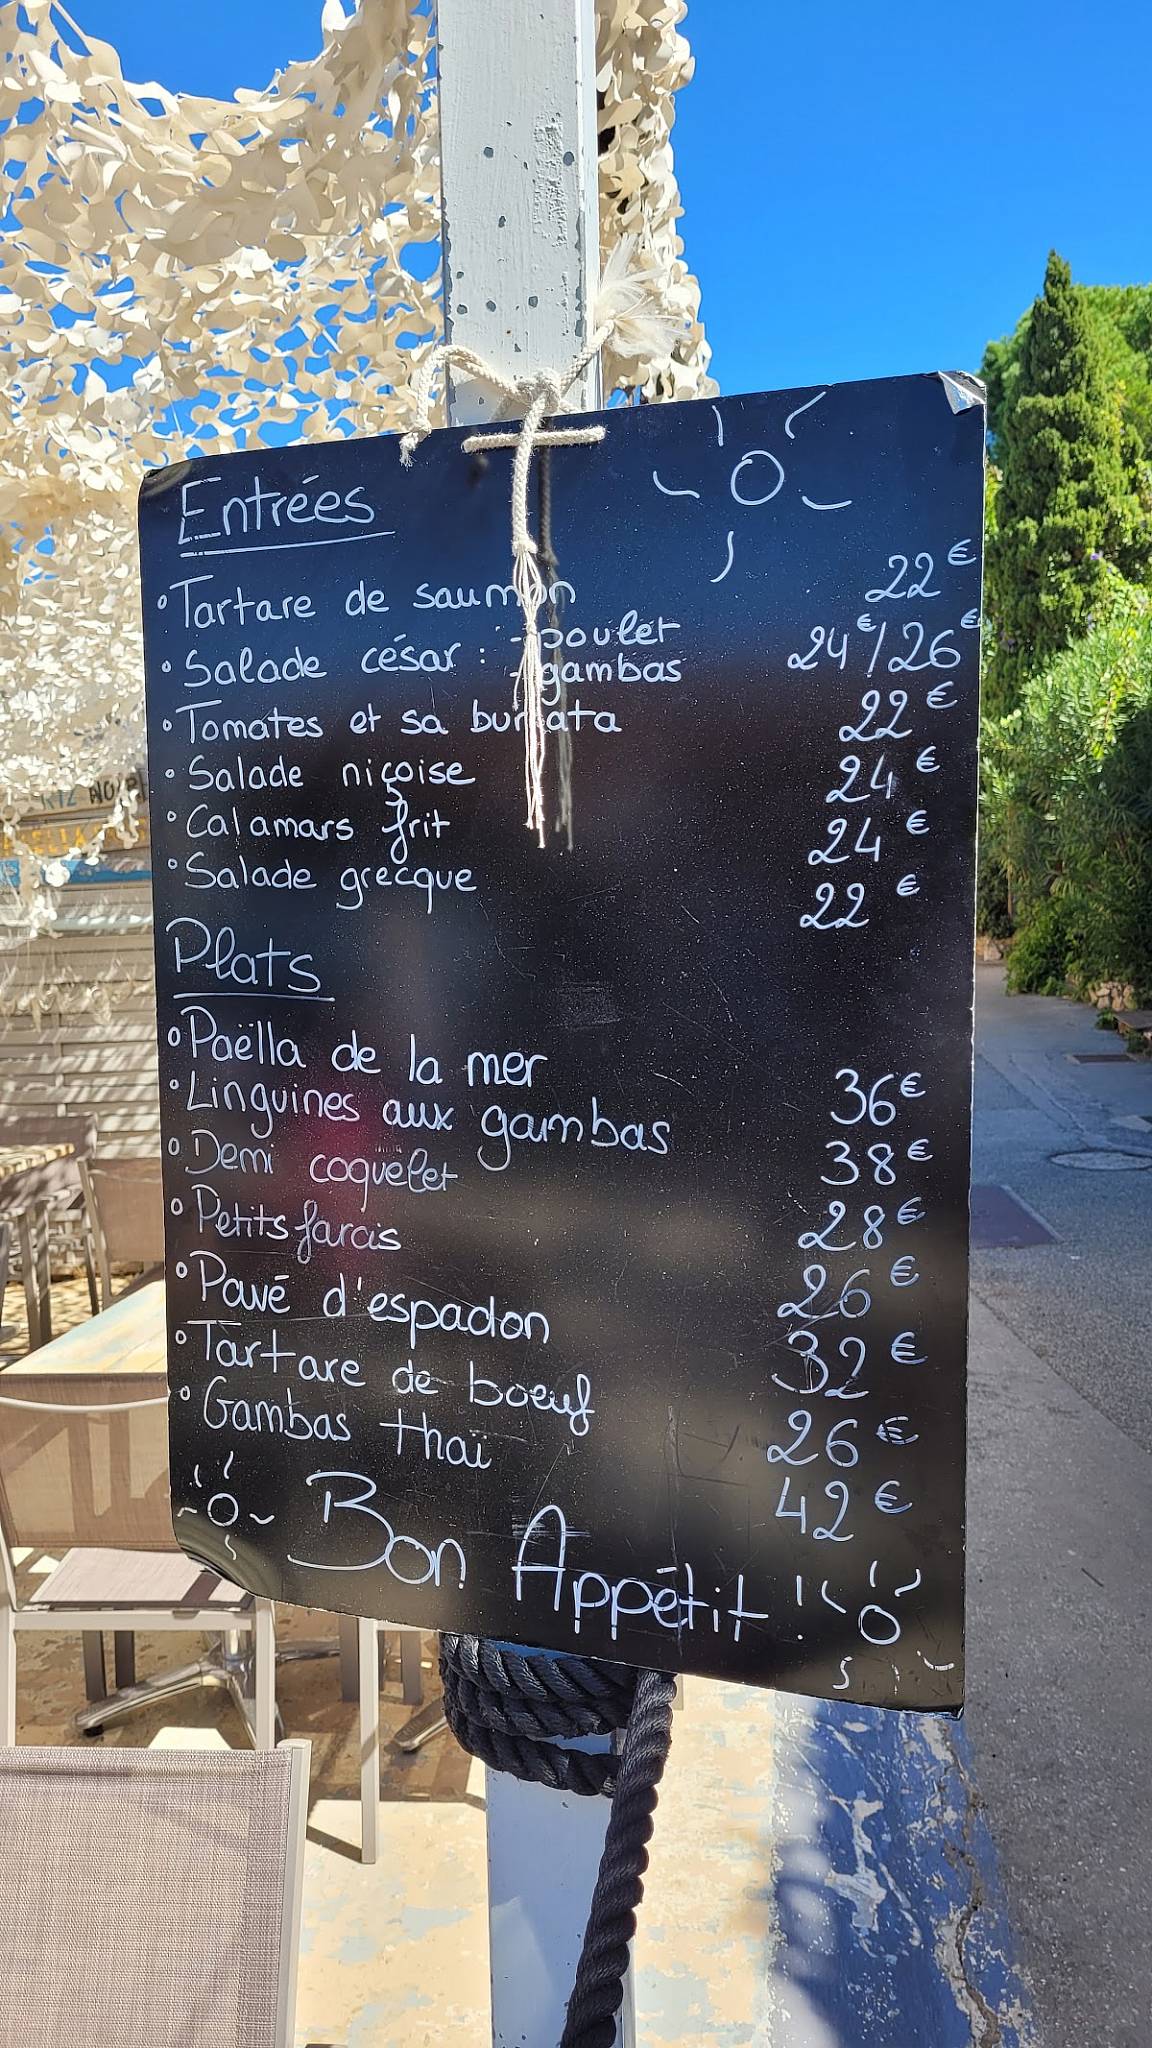 Entrées
Tartare de saumon 22€
Salade césar : - poulet 24€/26€
- gambas
Tomates et sa burrata 22€
Salade niçoise 24€
Calamars frit 24€
Salade grecque 22€
Plats
Paëlla de la mer 36€
Linguines aux gambas 38€
Demi coquelet 28€
Petits farcis 26€
Pavé d'espadon 32€
Tartare de boeuf 26€
Gambas thaï 42€
Bon Appétit !